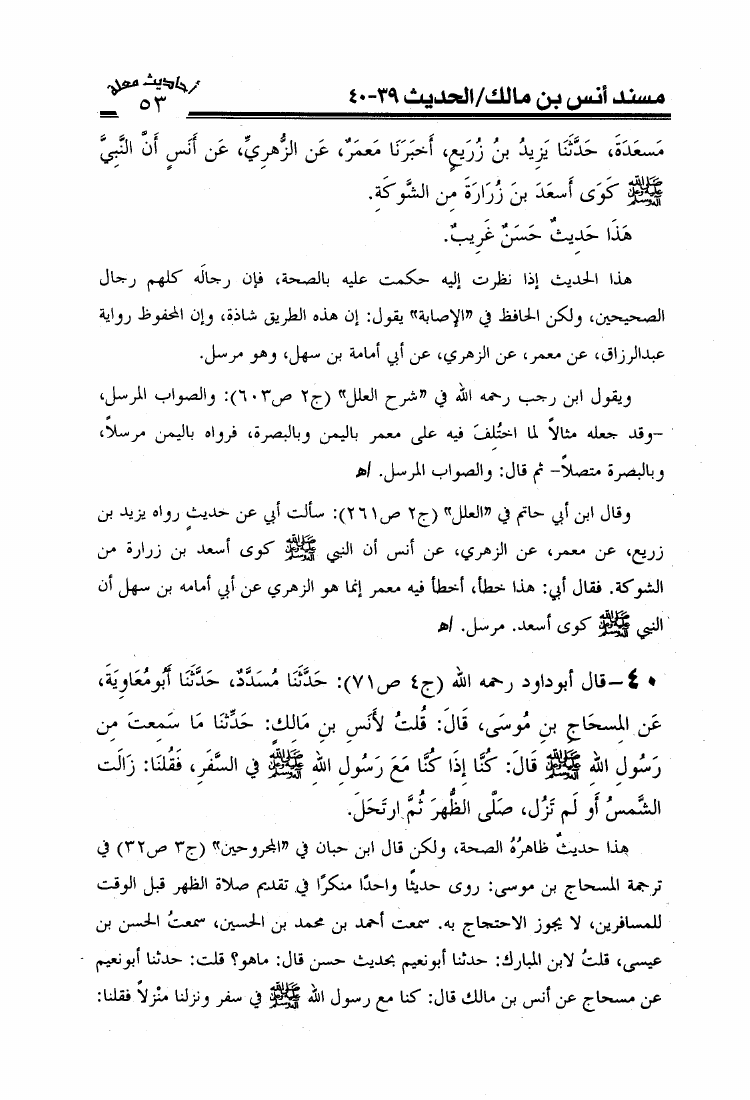 أحاديث معلة
مسند أنس بن مالك/الحديث ٣٩-٤٠
٥٣
مَسعَدَةَ، حَدَّثَنَا يَزِيدُ بنُ زُرَيعٍ، أَخبَرَنَا مَعمَرٌ، عَن الزُّهرِيِّ، عَن أَنَسٍ أَنَّ النَّبِيَّ
ﷺ كَوَى أَسعَدَ بنَ زُرَارَةَ مِن الشَّوكَةِ.
هَذَا حَدِيثٌ حَسَنٌ غَرِيبٌ.
هذا الحديث إذا نظرت إليه حكمت عليه بالصحة، فإن رجالَه كلهم رجال
الصحيحين، ولكن الحافظ في «الإصابة» يقول: إن هذه الطريق شاذة، وإن المحفوظ رواية
عبدالرزاق، عن معمر، عن الزهري، عن أبي أمامة بن سهل، وهو مرسل.
ويقول ابن رجب رحمه الله في «شرح العلل» (ج٢ ص٦٠٣): والصواب المرسل،
-وقد جعله مثالاً لما اختُلِفَ فيه على معمر باليمن وبالبصرة، فرواه باليمن مرسلاً،
وبالبصرة متصلاً- ثم قال: والصواب المرسل. اﻫ
وقال ابن أبي حاتم في «العلل» (ج٢ ص٢٦١): سألت أبي عن حديثٍ رواه يزيد بن
زريع، عن معمر، عن الزهري، عن أنس أن النبي ﷺ كوى أسعد بن زرارة من
الشوكة. فقال أبي: هذا خطأ، أخطأ فيه معمر إنما هو الزهري عن أبي أمامه بن سهل أن
النبي ﷺ كوى أسعد. مرسل. اﻫ
٤٠-قال أبوداود رحمه الله (ج٤ ص٧١): حَدَّثَنَا مُسَدَّدٌ، حَدَّثَنَا أَبُومُعَاوِيَةَ،
عَن المِسحَاجِ بنِ مُوسَى، قَالَ: قُلتُ لأَنَسِ بنِ مَالِكٍ: حَدِّثنَا مَا سَمِعتَ مِن
رَسُولِ اللهِ ﷺ قَالَ: كُنَّا إِذَا كُنَّا مَعَ رَسُولِ اللهِ ﷺ فِي السَّفَرِ، فَقُلنَا: زَالَت
الشَّمسُ أَو لَم تَزُل، صَلَّى الظُّهرَ ثُمَّ ارتَحَلَ.
هذا حديثٌ ظاهرُهُ الصحة، ولكن قال ابن حبان في «المجروحين» (ج٣ ص٣٢) في
ترجمة المسحاج بن موسى: روى حديثًا واحدًا منكرًا في تقديم صلاة الظهر قبل الوقت
للمسافرين، لا يجوز الاحتجاج به. سمعت أحمد بن محمد بن الحسين، سمعتُ الحسن بن
عيسى، قلتُ لابن المبارك: حدثنا أبونعيم بحديث حسن قال: ماهو؟ قلت: حدثنا أبونعيم
عن مسحاج عن أنس بن مالك قال: كنا مع رسول الله ﷺ في سفر ونزلنا منْزلاً فقلنا: